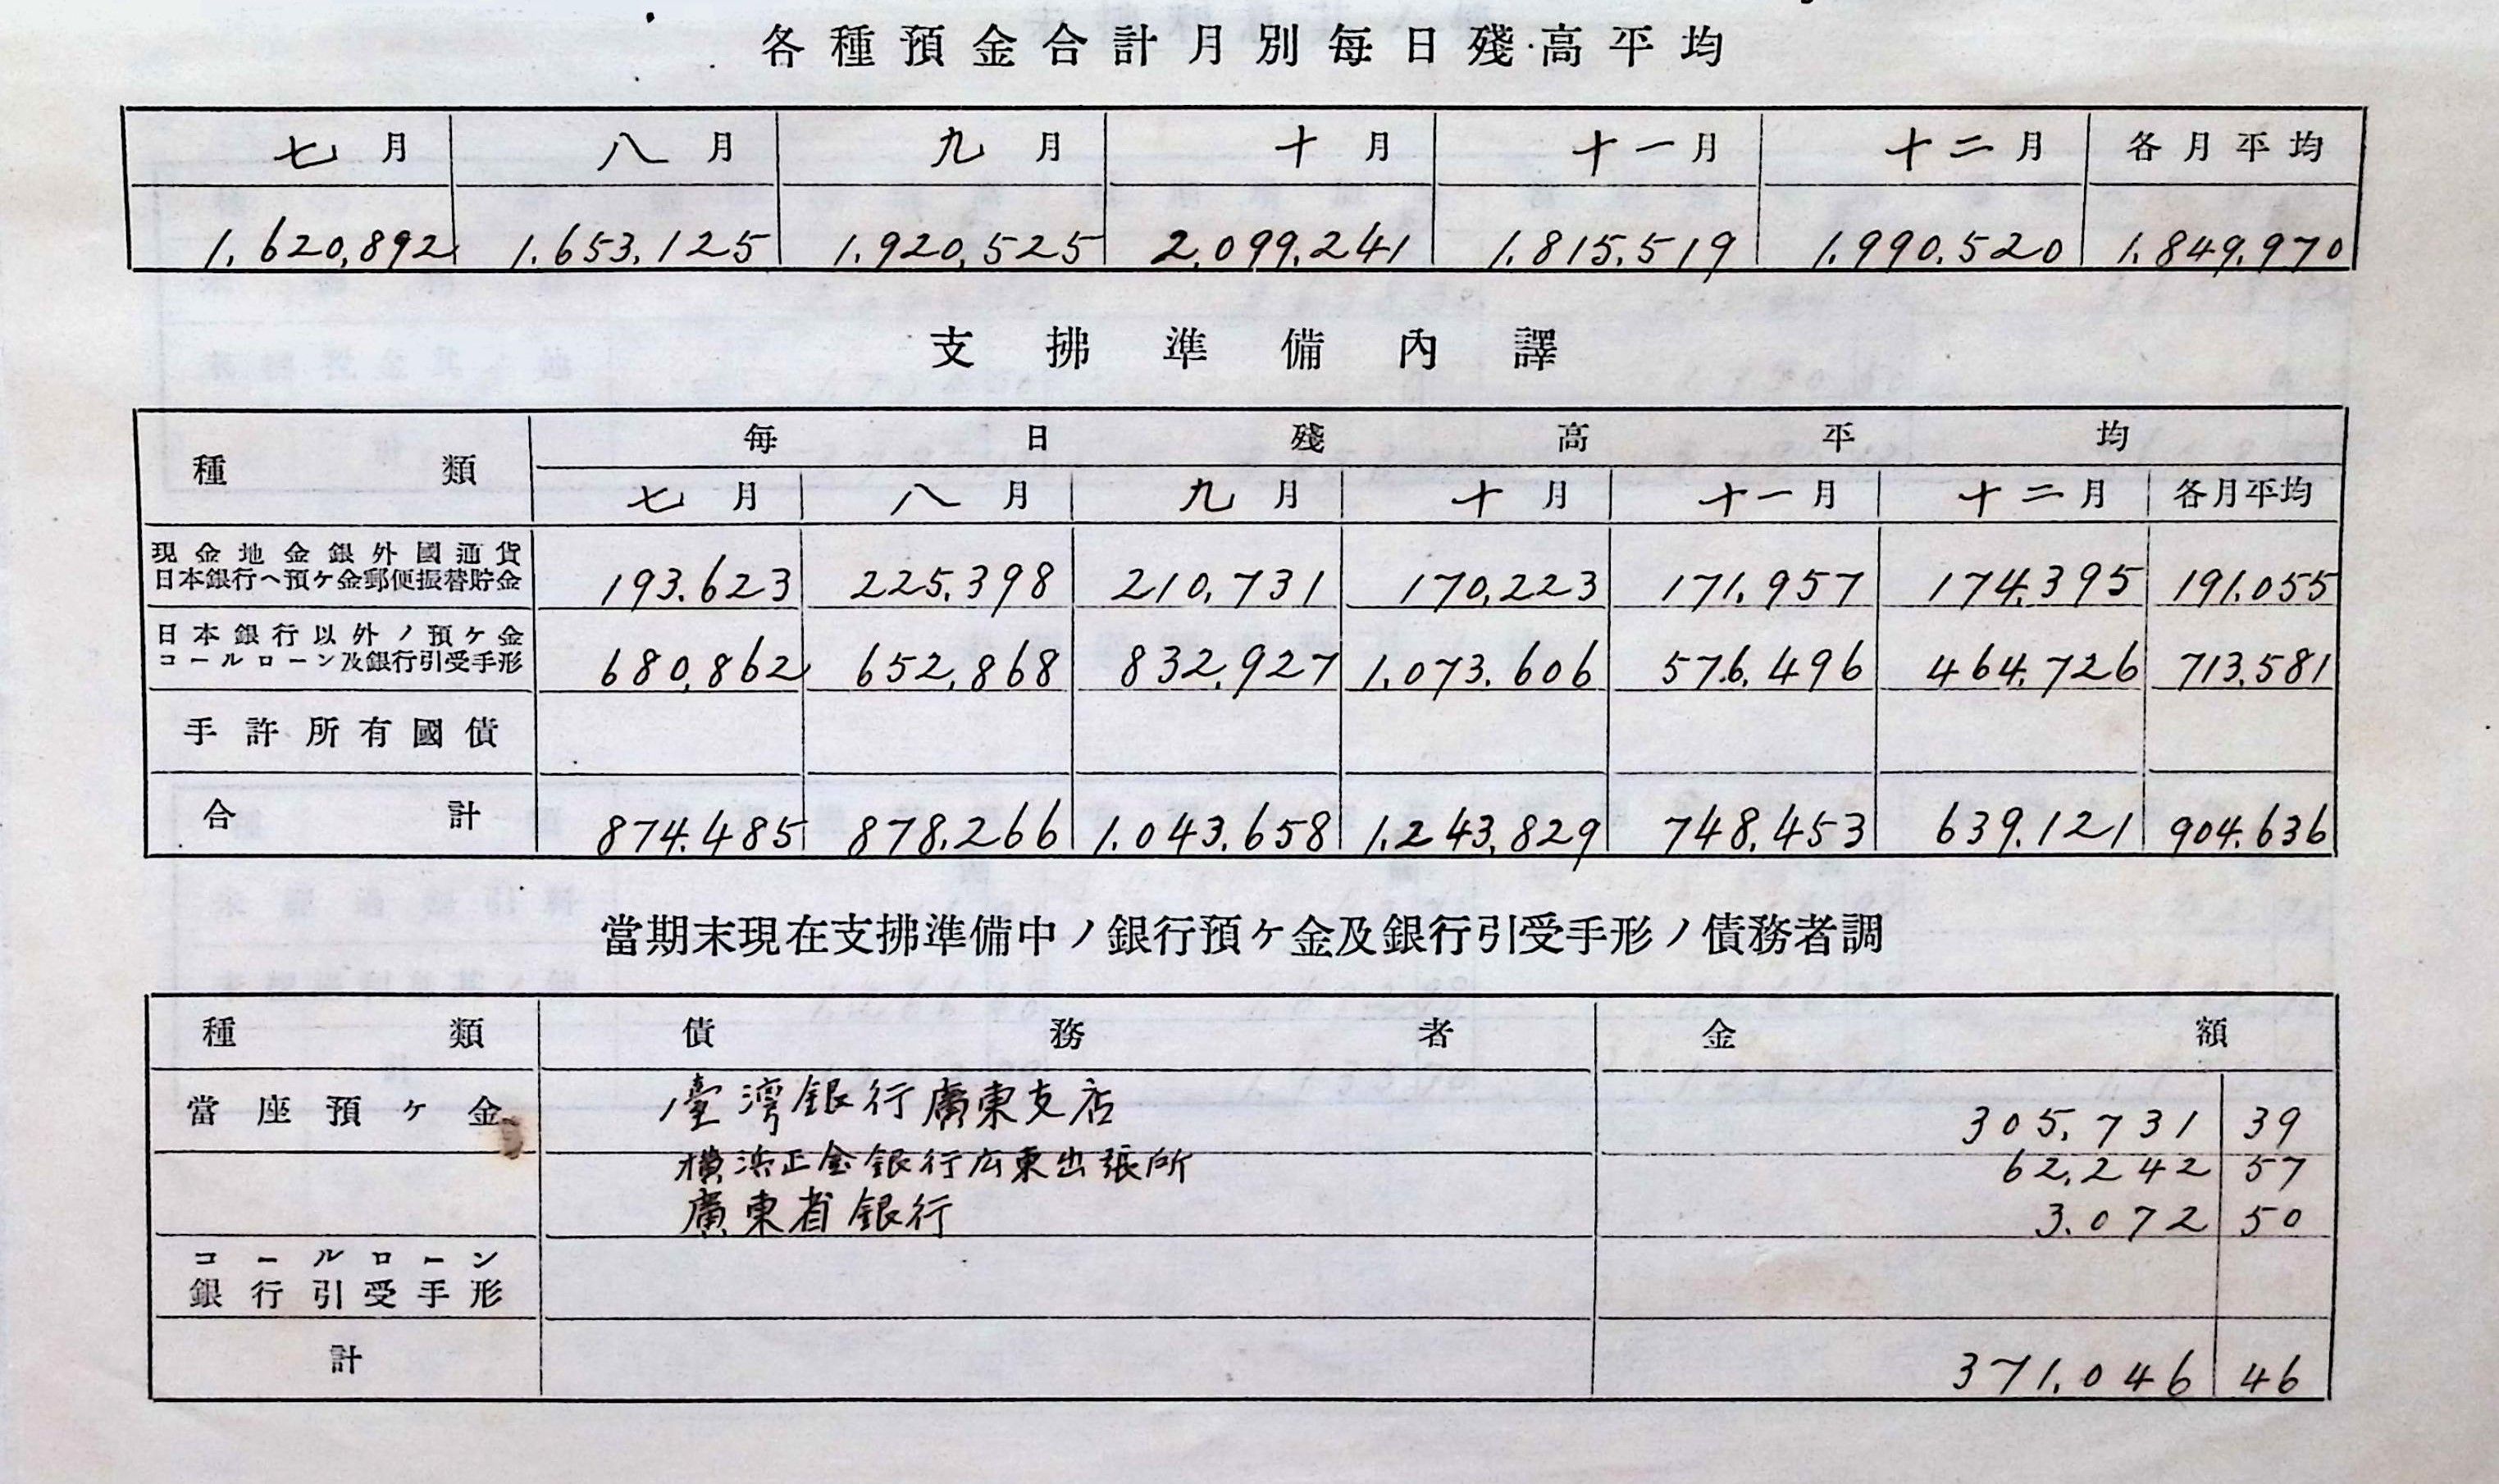 各種預金合計月別每日殘高平均
七月 八月 九月 十月 十一月 十二月 各月平均
1,620,892 1.653,125 1.920,525 2,099,241 1.815,519 1.990,520 1.849,970
支拂準備內譯
種類 每日殘高平均
七月 八月 九月 十月 十一月 十二月 各月平均
現金地金銀外國通貨
日本銀行ヘ預ケ金郵便振替貯金 193.623 225,398 210,731 170,223 171,957 174,395 191,055
日本銀行以外ノ預ケ金
コールローン及銀行引受手形 680,862 652,868 832,927 1,073,606 576,496 464,726 713,581
手許所有國債
合計 874,485 878,266 1.043,658 1,243,829 748,453 639,121 904,636
當期末現在支拂準備中ノ銀行預ケ金及銀行引受手形ノ債務者調
種類 債務者 金額
當座預ケ金 臺湾銀行廣東支店 305,731 39
横浜正金銀行広東出張所 62,242 57
廣東省銀行 3.072 50
コールローン
銀行引受手形
計 371,046 46